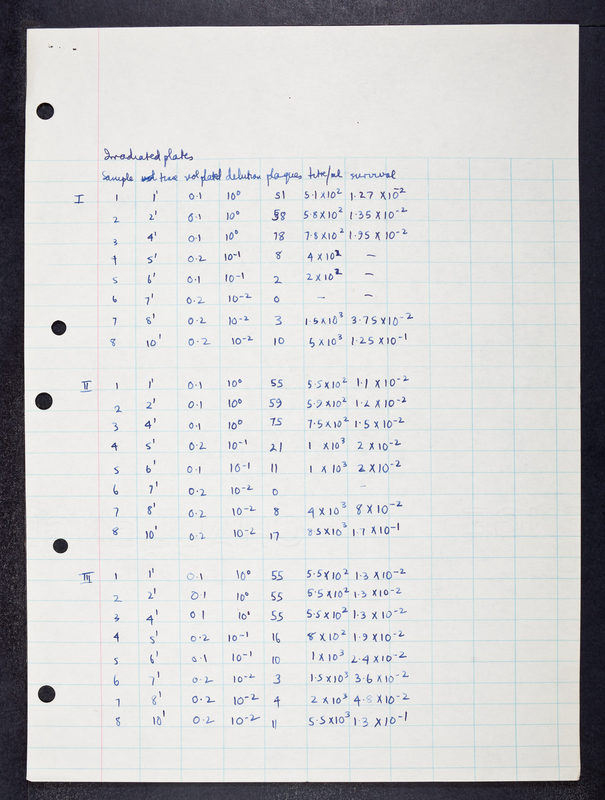 Irradiated plates
Sample time vol plated dilution plaques titre/ml survival
I 1 1' 0.1 10⁰ 51 5.1 x 10² 1.27 x 10⁻²
2 2' 0.1 10⁰ 58 5.8 x 10² 1.35 x 10⁻²
3 4' 0.1 10⁰ 78 7.8 x 10² 1.95 x 10⁻²
4 5' 0.2 10⁻¹ 8 4 x 10² –
5 6' 0.1 10⁻¹ 2 2 x 10² –
6 7' 0.2 10⁻² 0 – –
7 8' 0.2 10⁻² 3 1.5 x 10³ 3.75 x 10⁻²
8 10' 0.2 10⁻² 10 5 x 10³ 1.25 x 10⁻¹
II 1 1' 0.1 10⁰ 55 5.5 x 10² 1.1 x 10⁻²
2 2' 0.1 10⁰ 59 5.9 x 10² 1.2 x 10⁻²
3 4' 0.1 10⁰ 75 7.5 x 10² 1.5 x 10⁻²
4 5' 0.2 10⁻¹ 21 1 x 10³ 2 x 10⁻²
5 6' 0.1 10⁻¹ 11 1 x 10³ 2 x 10⁻²
6 7' 0.2 10⁻² 0 –
7 8' 0.2 10⁻² 8 4 x 10³ 8 x 10⁻²
8 10' 0.2 10⁻² 17 8.5 x 10³ 1.7 x 10⁻¹
III 1 1' 0.1 10⁰ 55 5.5 x 10² 1.3 x 10⁻²
2 2' 0.1 10⁰ 55 5.5 x 10² 1.3 x 10⁻²
3 4' 0.1 10⁰ 55 5.5 x 10² 1.3 x 10⁻²
4 5' 0.2 10⁻¹ 16 8 x 10² 1.9 x 10⁻²
5 6' 0.1 10⁻¹ 10 1 x 10³ 2.4 x 10⁻²
6 7' 0.2 10⁻² 3 1.5 x 10³ 3.6 x 10⁻²
7 8' 0.2 10⁻² 4 2 x 10³ 4.8 x 10⁻²
8 10' 0.2 10⁻² 11 5.5 x 10³ 1.3 x 10⁻¹